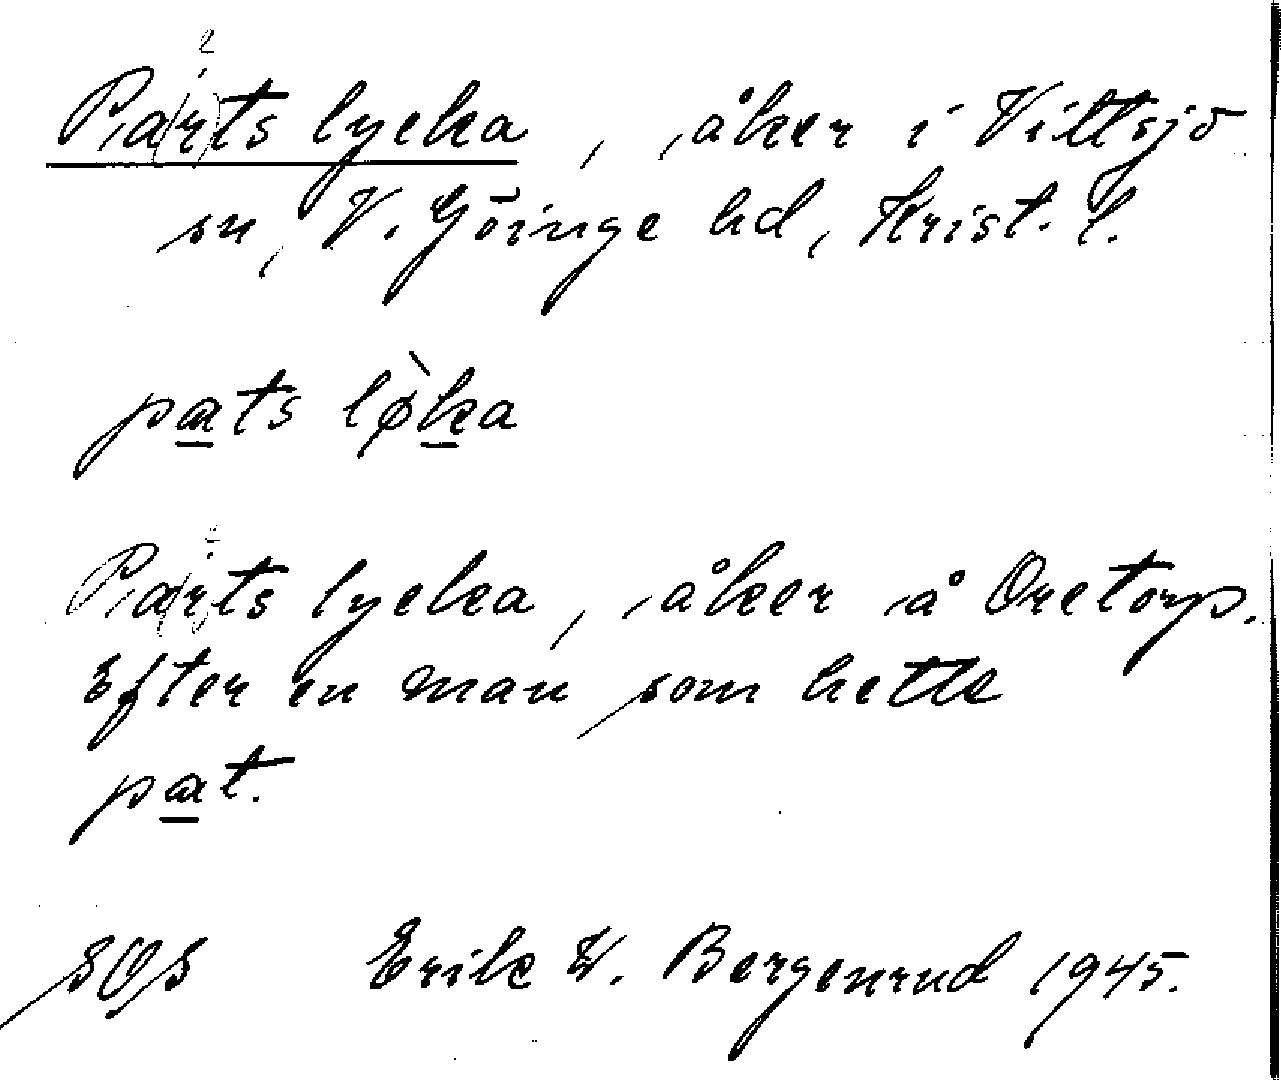 Pa(r)ts lycka, åker i Vittsjö
sn, V. Göinge hd, Krist. l.
pats lø̀ka
Pa(r)ts lycka, åker å Oretorp.
Efter en man som hette
pat.
SOS Erik W. Bergenrud 1945.